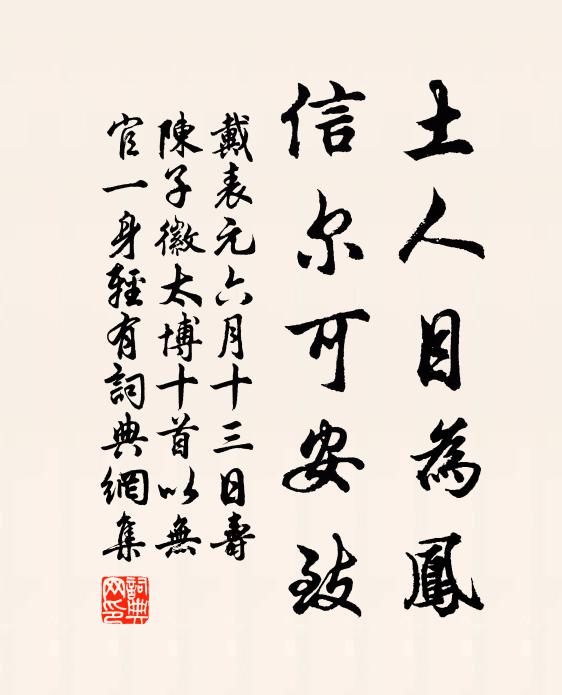 土人目為鳳
信尔可安致
戴表元六月十三日壽
陳子徽太博十首以無
官一身輕有詞典網集
詞典網印